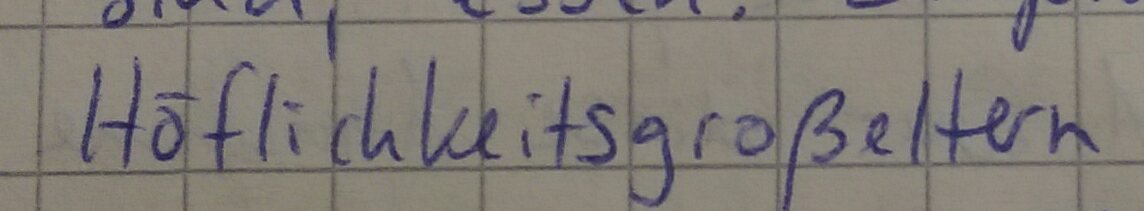 Höflichkeitsgroßeltern